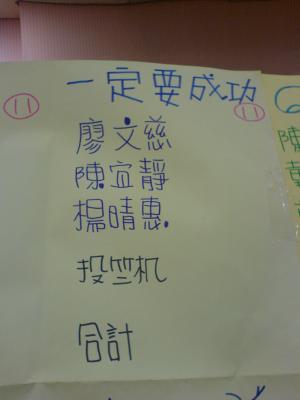 一定要成功
11 11
廖文慈
陳宜靜
楊晴惠
投竺机
合計
陳